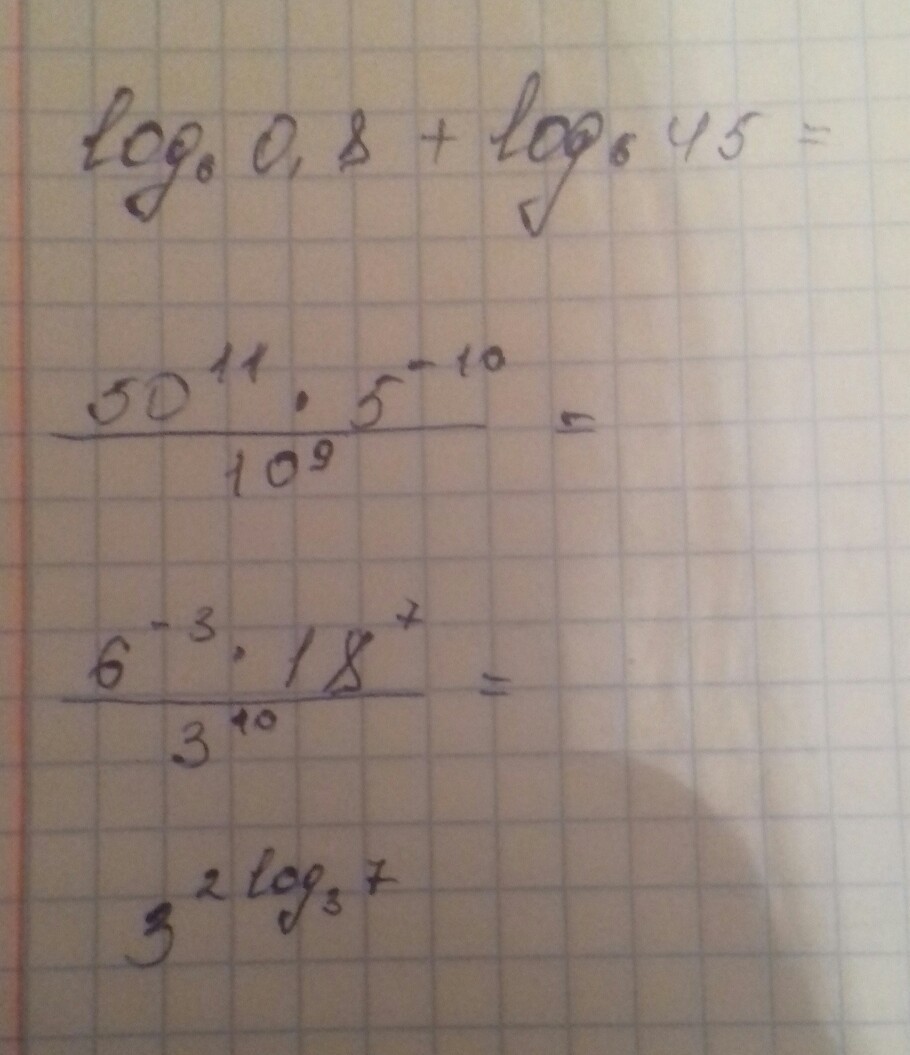 log₆ 0,8 + log₆ 45 =
50¹¹ · 5⁻¹⁰
10⁹ =
6⁻³ · 18⁷
3¹⁰ =
3^(2 log₃ 7)